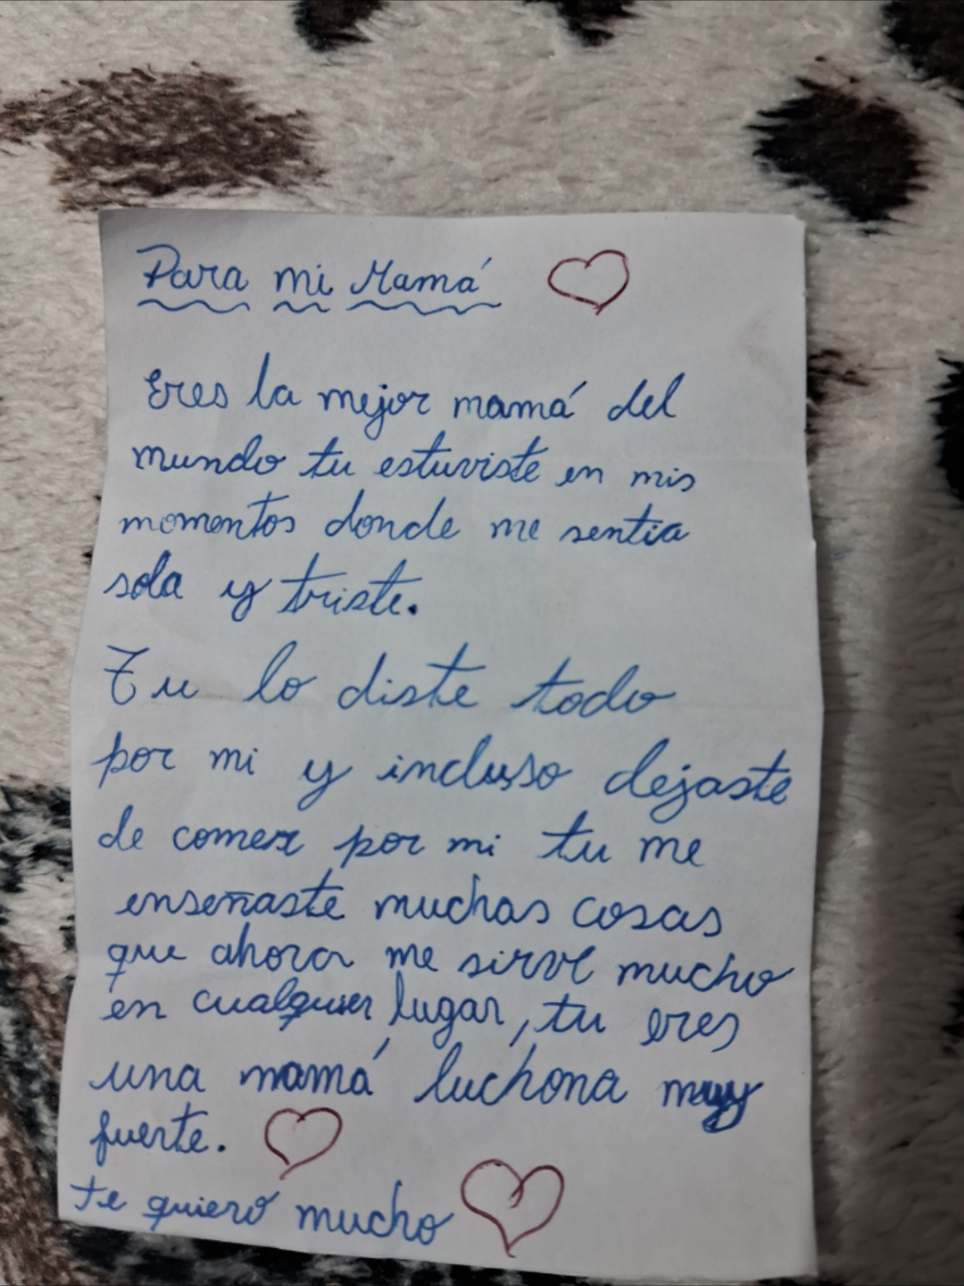 Para mi Mamá
Eres la mejor mamá del
mundo tu estuviste en mis
momentos donde me sentia
sola y triste.
Tu lo diste todo
por mi y incluso dejaste
de comer por mi tu me
enseñaste muchas cosas
que ahora me sirve mucho
en cualquier lugar, tu eres
una mamá luchona muy
fuerte.
te quiero mucho